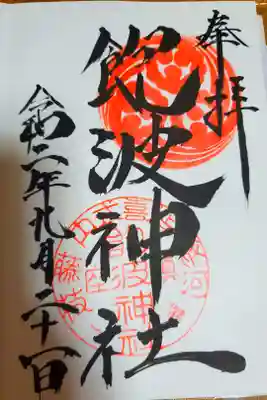 奉拝
飽波神社
令和二年九月二十一日